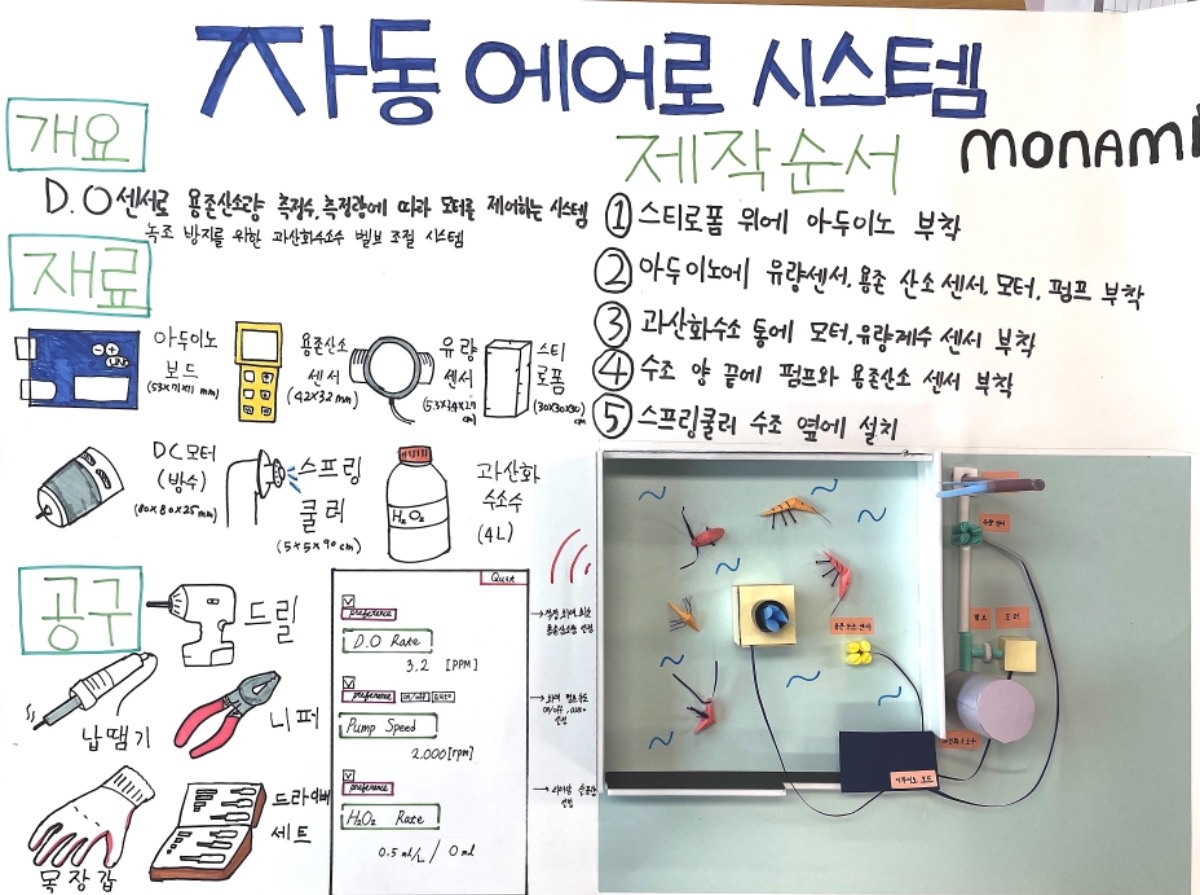 자동 에어로 시스템
monami
개요
D.O 센서로 용존산소량 측정수, 측정량에 따라 모터를 제어하는 시스템
녹조 방지를 위한 과산화수소수 벨브 조절 시스템
재료
아두이노
보드
(53×71×11 mm)
용존산소
센서
(42×32mm)
유량
센서
스티
로폼
(30×30×30
cm)
DC모터
(방수)
(80×80×25mm)
스프링
쿨러
(5×5×90cm)
H₂O₂
과산화
수소수
(4L)
공구
드릴
납땜기
니퍼
목장갑
드라이버
세트
Quit
preference
D.O Rate
3.2 [PPM]
preference on/off auto
Pump Speed
2.000[rpm]
preference
H₂O₂ Rate
0.5 ml/L / 0 ml
제작순서
① 스티로폼 위에 아두이노 부착
② 아두이노에 유량센서, 용존 산소 센서, 모터, 펌프 부착
③ 과산화수소 통에 모터, 유량계수 센서 부착
④ 수조 양 끝에 펌프와 용존산소 센서 부착
⑤ 스프링쿨러 수조 옆에 설치
유량 센서
벨브 모터
용존 산소 센서
과산화수소수
아두이노 보드